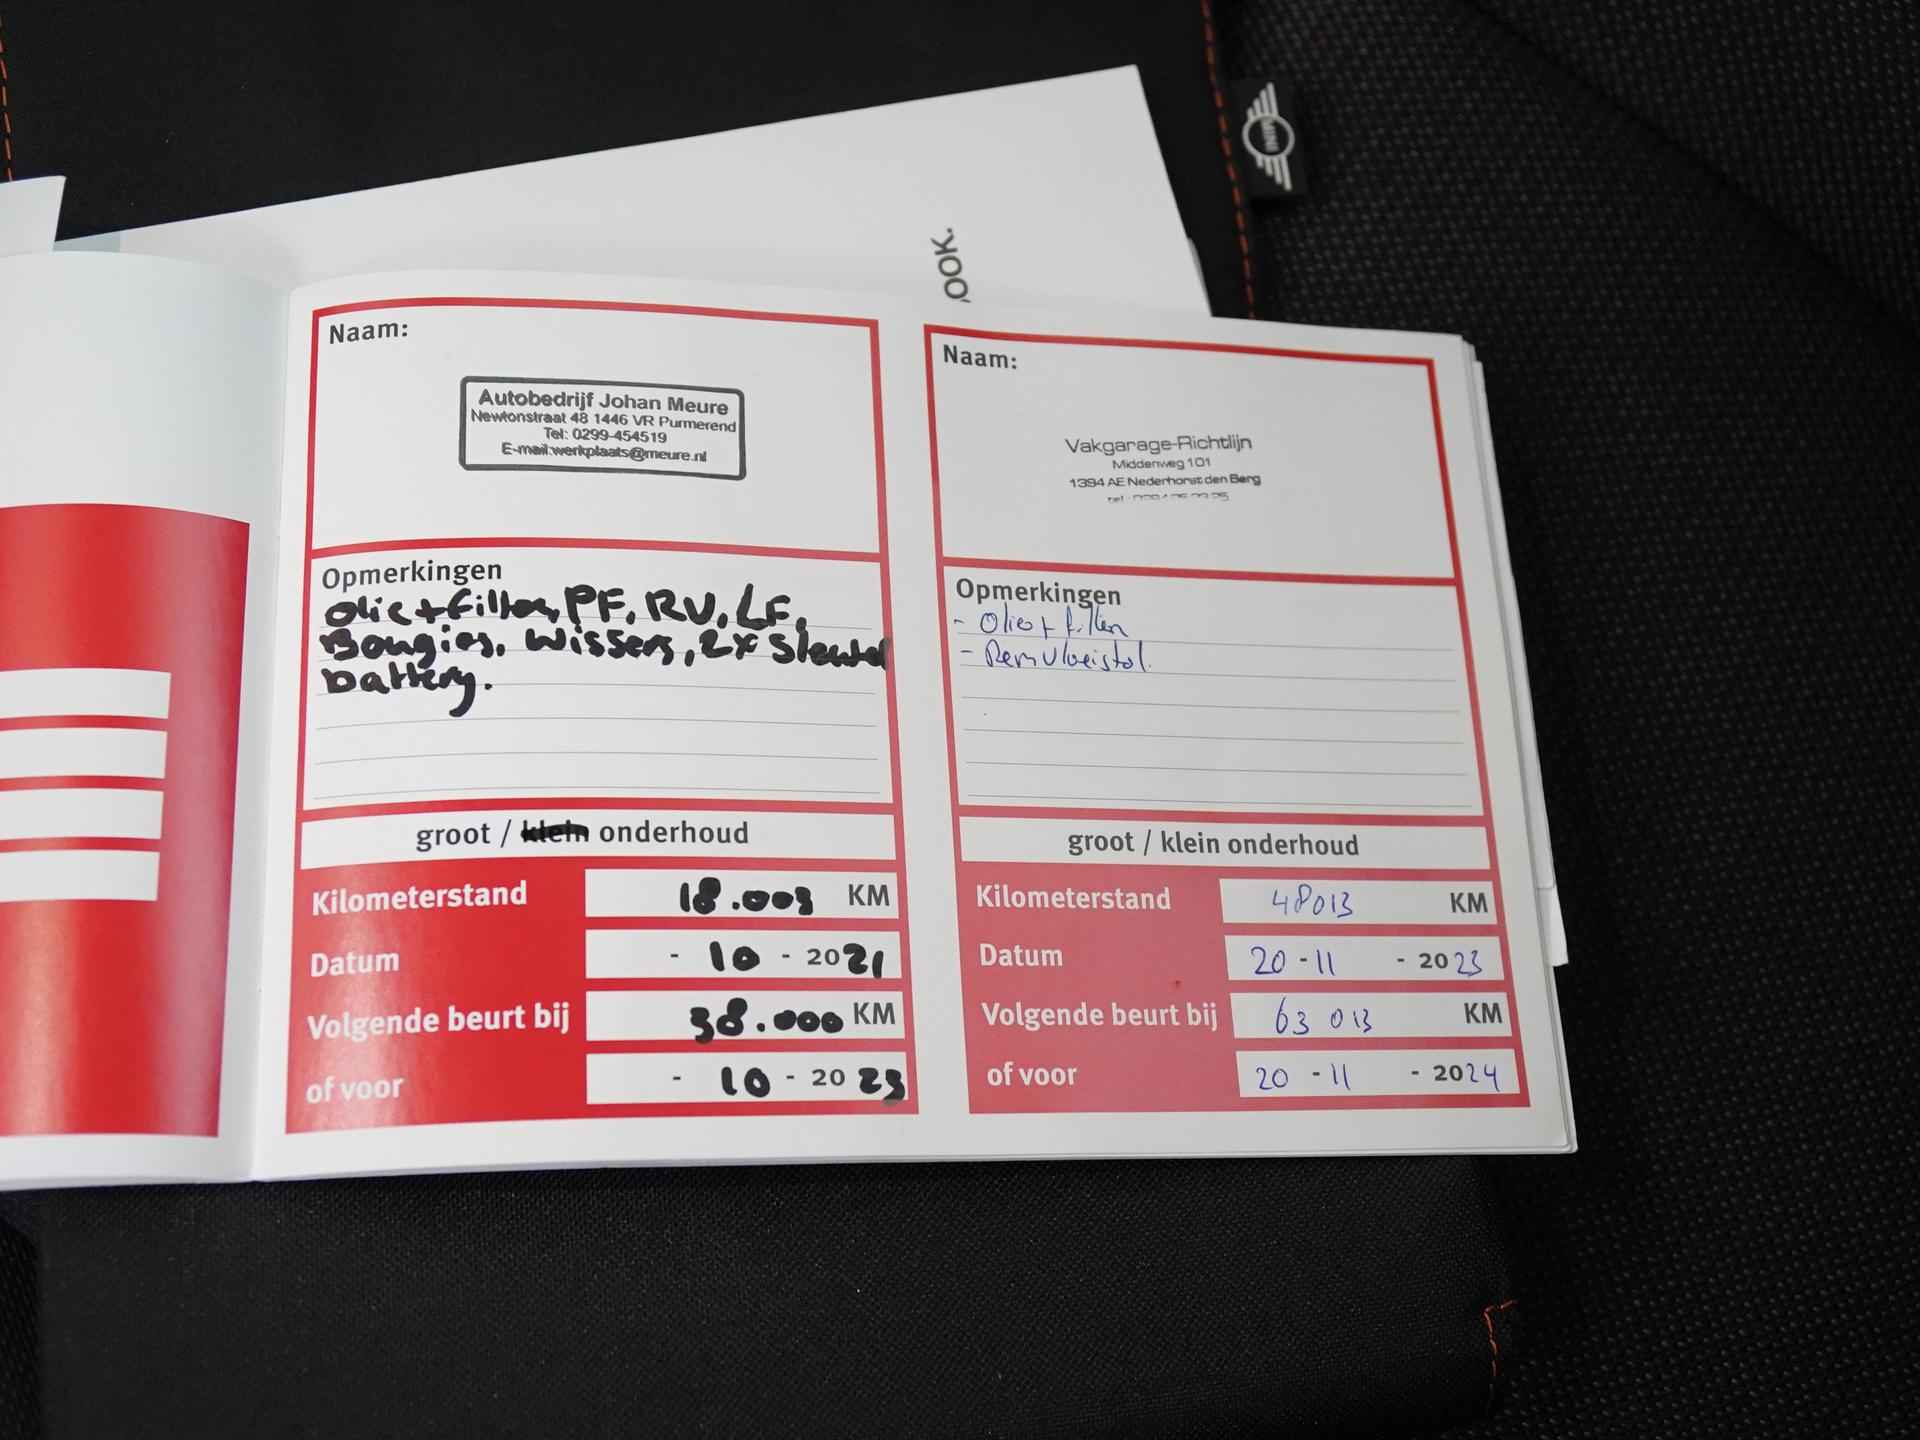 MINI
OOK.
Naam:
Autobedrijf Johan Meure
Newtonstraat 48 1446 VR Purmerend
Tel: 0299-454519
E-mail:werkplaats@meure.nl
Opmerkingen
Olie+filter, PF, RV, LF,
Bougies, Wissers, 2x Sleutel
battery.
groot / klein onderhoud
Kilometerstand 18.003 KM
Datum - 10 - 2021
Volgende beurt bij 38.000 KM
of voor - 10 - 20 23
Naam:
Vakgarage-Richtlijn
Middenweg 101
1394 AE Nederhorst den Berg
tel
Opmerkingen
- Olie + filter
- Remvloeistof.
groot / klein onderhoud
Kilometerstand 48013 KM
Datum 20 - 11 - 2023
Volgende beurt bij 63 013 KM
of voor 20 - 11 - 2024